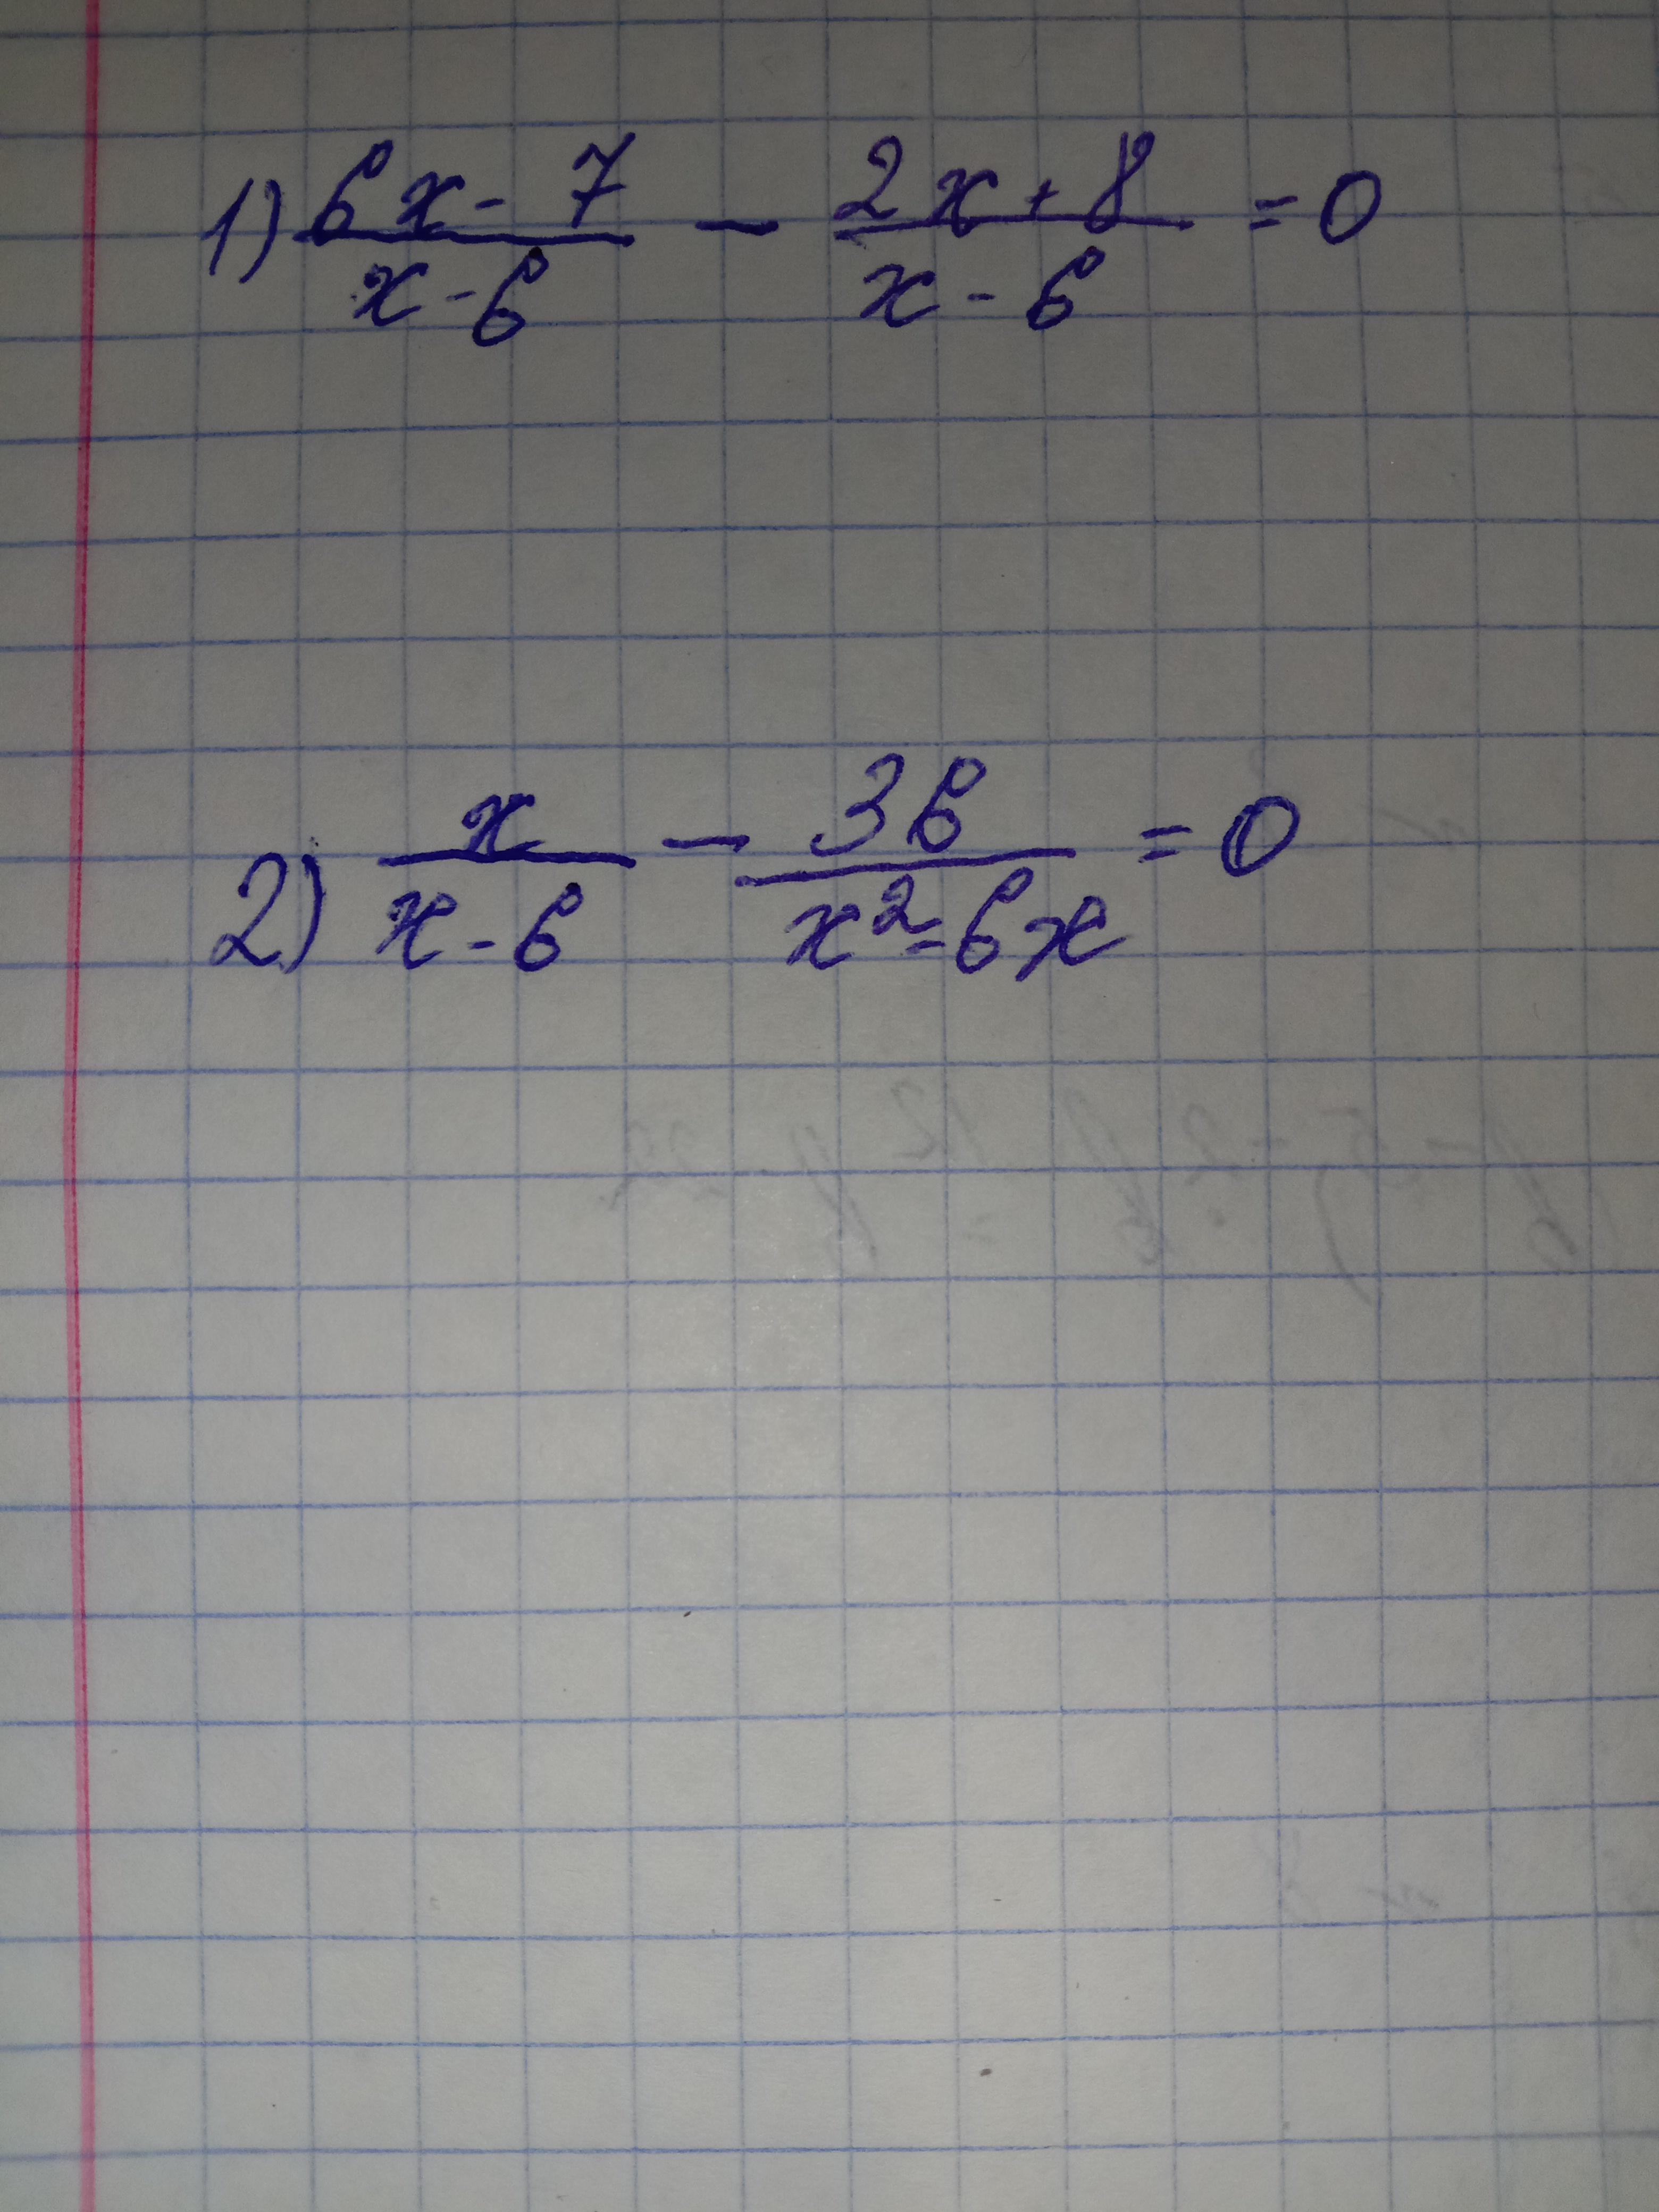 1) (6x - 7)/(x - 6) - (2x + 8)/(x - 6) = 0
2) x/(x - 6) - 36/(x² - 6x) = 0